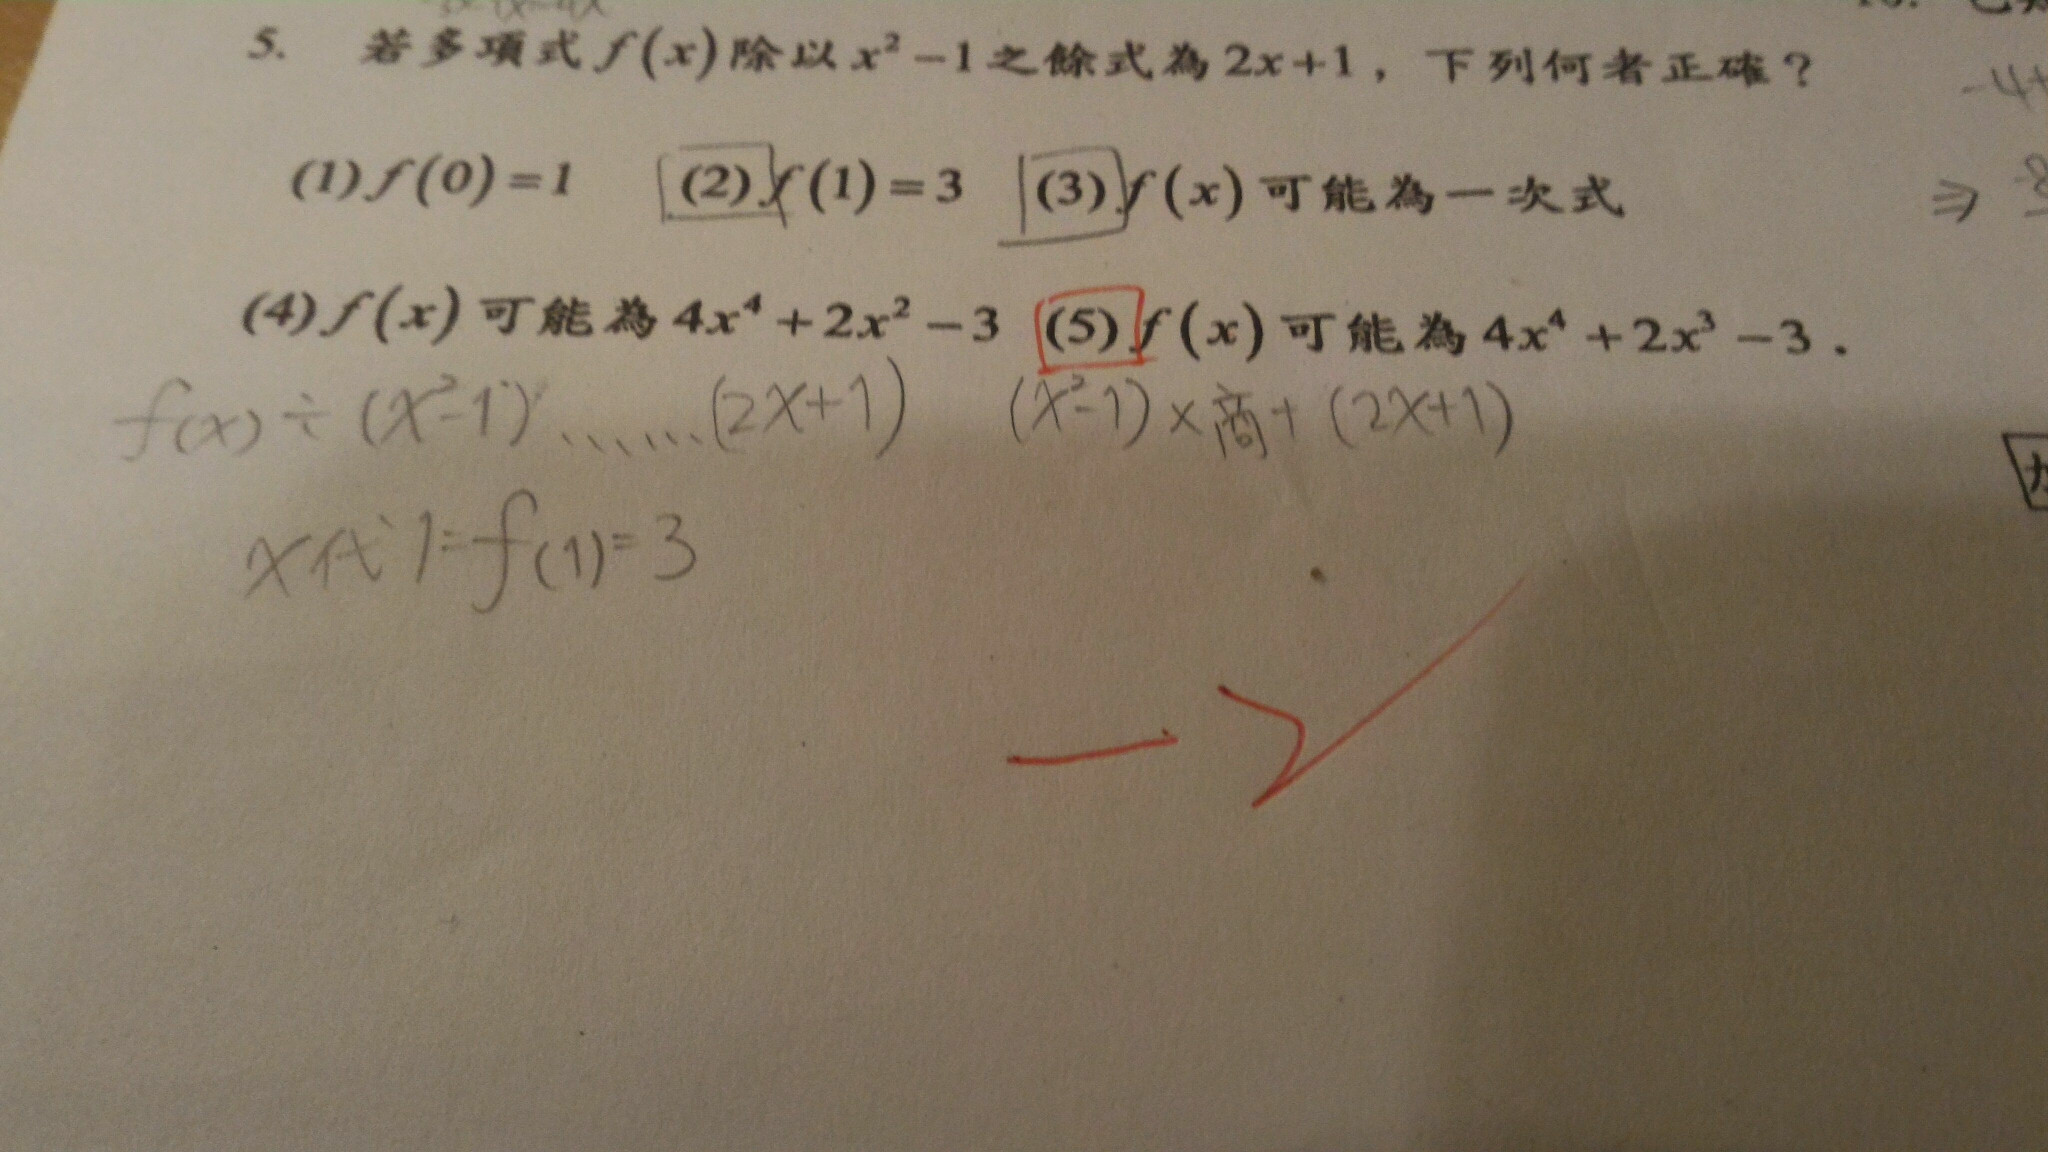 5. 若多項式 f(x) 除以 x² − 1 之餘式為 2x + 1，下列何者正確？
-4+
(1) f(0) = 1 (2) f(1) = 3 (3) f(x) 可能為一次式
⇒
(4) f(x) 可能為 4x⁴ + 2x² − 3 (5) f(x) 可能為 4x⁴ + 2x³ − 3．
f(x) ÷ (x²-1) …… (2x+1) (x²-1) × 商 + (2x+1)
x代1 = f(1) = 3